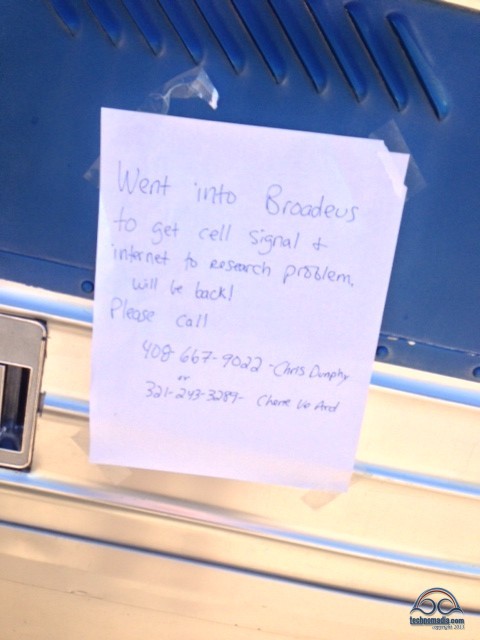 Went into Broadeus
to get cell signal +
internet to research problem.
will be back!
Please call
408-667-9022 - Chris Dunphy
or
321-243-3289 - Cherie Ve Ard
technomadia.com
copyright 2013